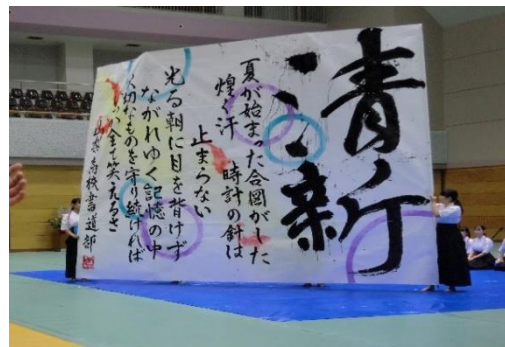 青
新
夏が始まった合図がした
煌く汗 時計の針は
止まらない
光る朝に目を背けず
ながれゆく記憶の中
大切なものを守り続ければ
全て笑えるさ
高校書道部